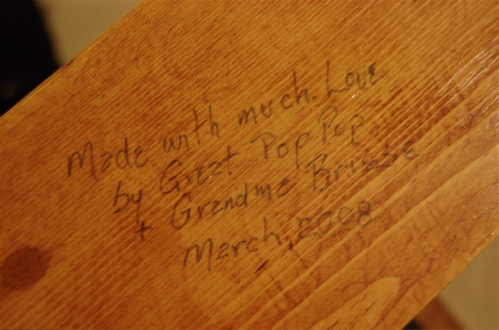 Made with much Love
by Great Pop Pop
+ Grandma
March, 2008